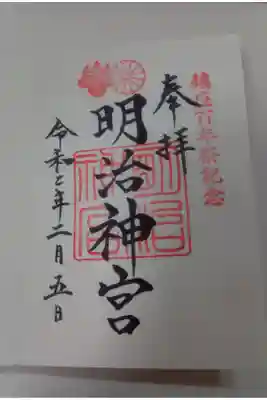 鎮座百年祭記念
奉拝
明治神宮
明治神宮
令和二年二月五日